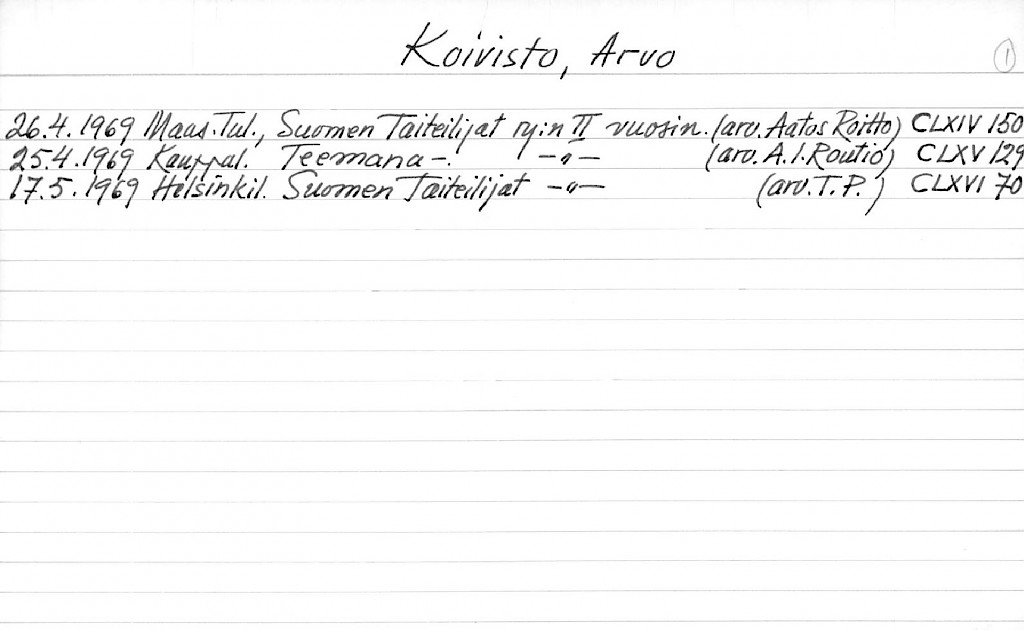 Koivisto, Arvo
1
26.4.1969 Maas.Tul., Suomen Taiteilijat ry:n II vuosin. (arv. Aatos Roitto) CLXIV 150
25.4.1969 Kauppal. Teemana -. -"- (arv. A.I.Routio) CLXV 129
17.5.1969 Helsinkil. Suomen Taiteilijat -"- (arv. T.P.) CLXVI 70